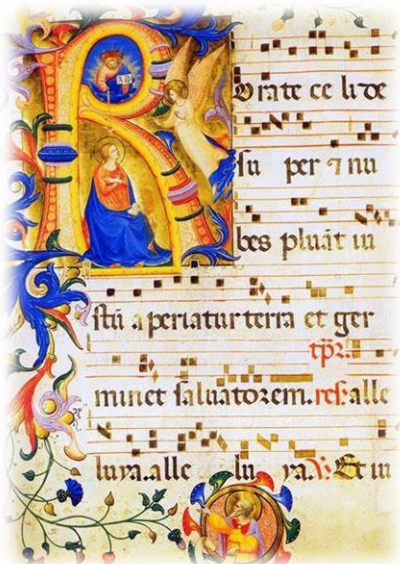 Rorate ce li de
ſu per ⁊ nu
bes pluāt iu
ſtū aperiatur terra et ger
tp̄r.
minet ſaluatorem. reſ: alle
luya..alle lu ya. V. Et iu